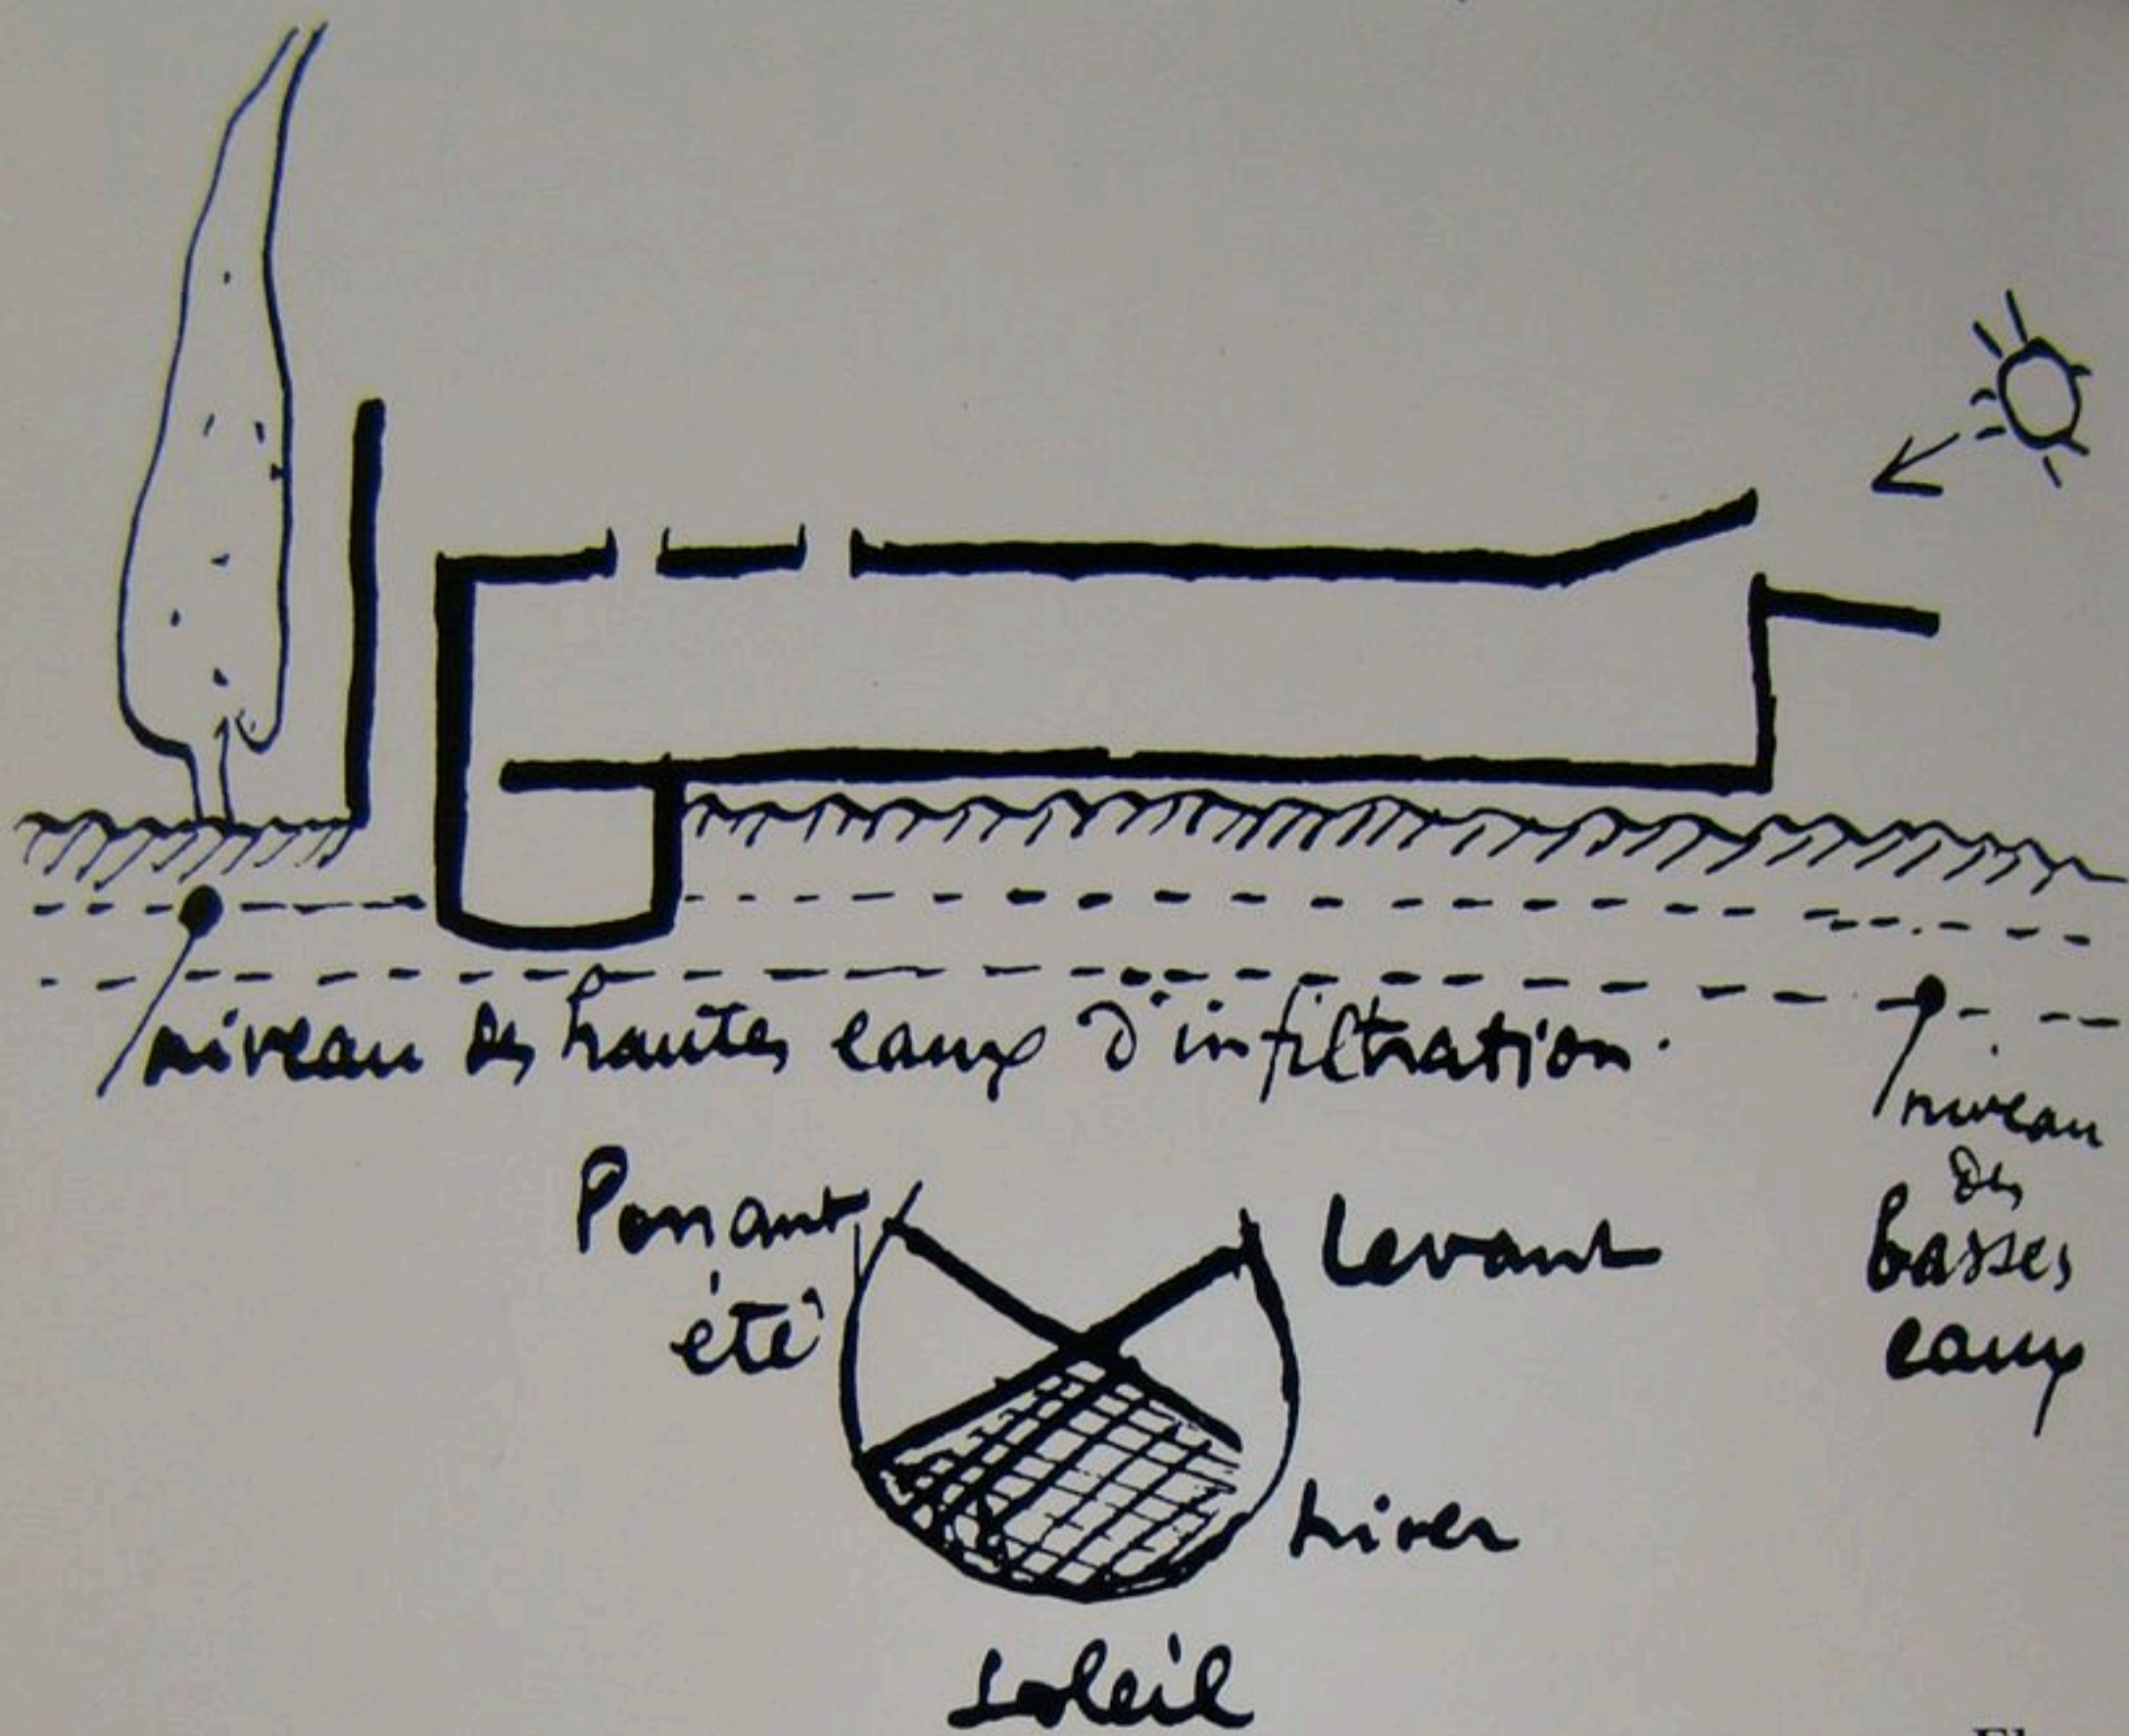 niveau des hautes eaux d'infiltration.
niveau
des
basses
eaux
Ponant
été
Levant
hiver
soleil